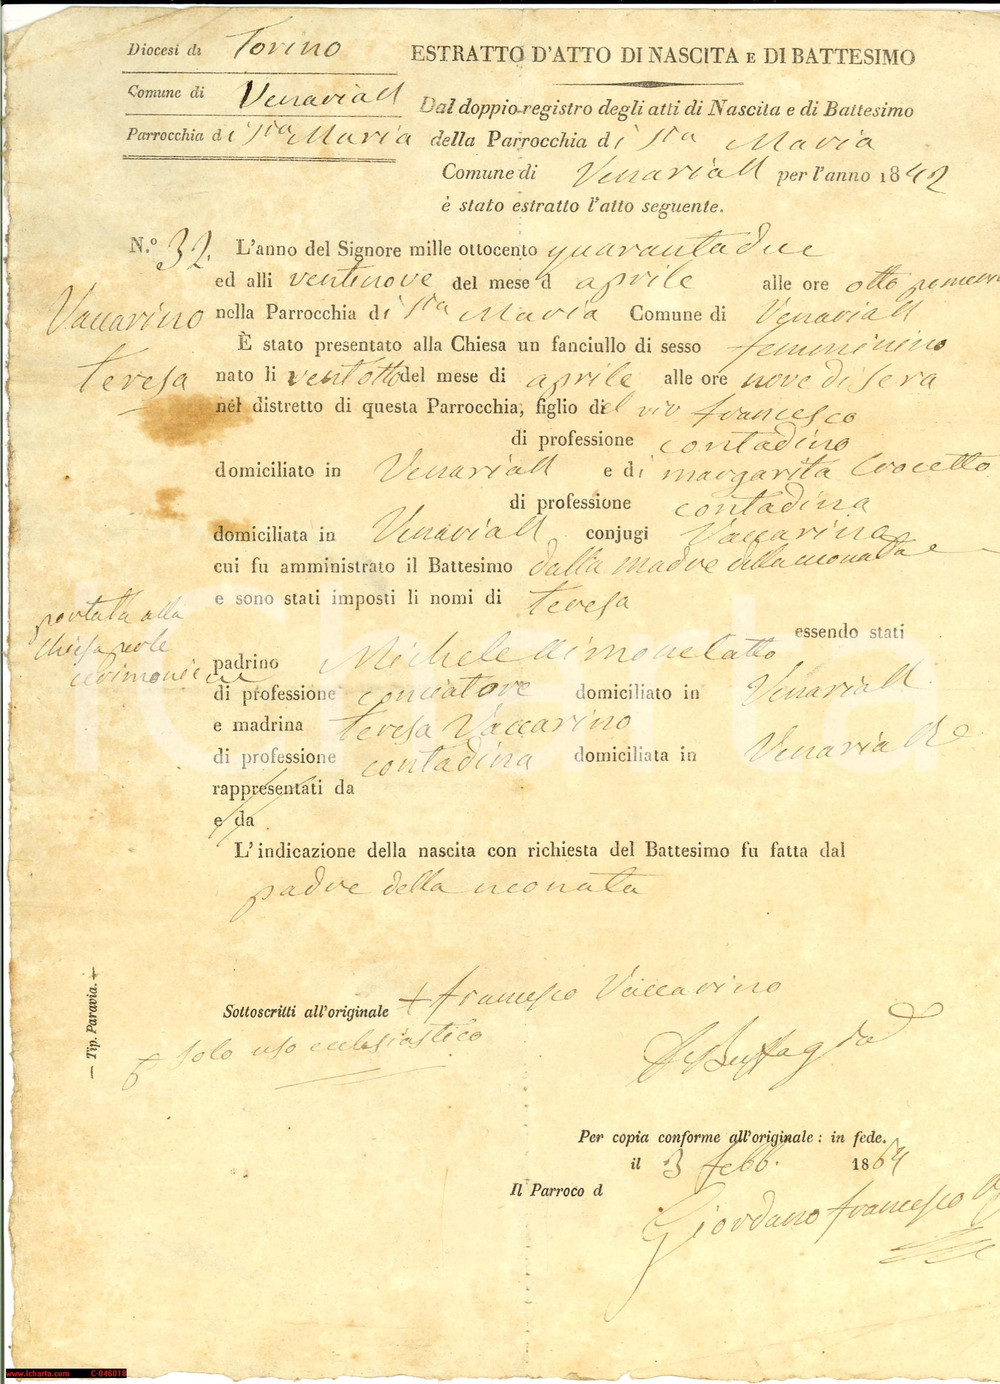 Diocesi di Torino
Comune di Venaria R
Parrocchia di Sta Maria
ESTRATTO D'ATTO DI NASCITA E DI BATTESIMO
Dal doppio registro degli atti di Nascita e di Battesimo
della Parrocchia di Sta Maria
Comune di Venaria R per l'anno 1842
è stato estratto l'atto seguente.
N.º 32. L'anno del Signore mille ottocento quarantadue
ed alli ventinove del mese d aprile alle ore otto
Vaccarino
Teresa
nella Parrocchia di Sta Maria Comune di Venaria R
È stato presentato alla Chiesa un fanciullo di sesso femminino
nato li ventotto del mese di aprile alle ore nove di sera
nel distretto di questa Parrocchia, figlio del Francesco
di professione contadino
domiciliato in Venaria R e di Margarita Crocetto
di professione contadina
domiciliata in Venaria R conjugi Vaccarino
cui fu amministrato il Battesimo dalla madre della neonata e
portata alla
chiesa per le
cerimonie
e sono stati imposti li nomi di Teresa
essendo stati
padrino Michele
di professione conciatore domiciliato in Venaria R.
e madrina Teresa Vaccarino
di professione contadina domiciliata in Venaria Rle
rappresentati da
e da
L'indicazione della nascita con richiesta del Battesimo fu fatta dal
padre della neonata
Sottoscritti all'originale + Francesco Vaccarino
solo uso ecclesiastico
Per copia conforme all'originale: in fede.
il 3 Febb. 1864
Il Parroco d
Giordano Francesco
— Tip. Paravia. —
www.icharta.com C-046018